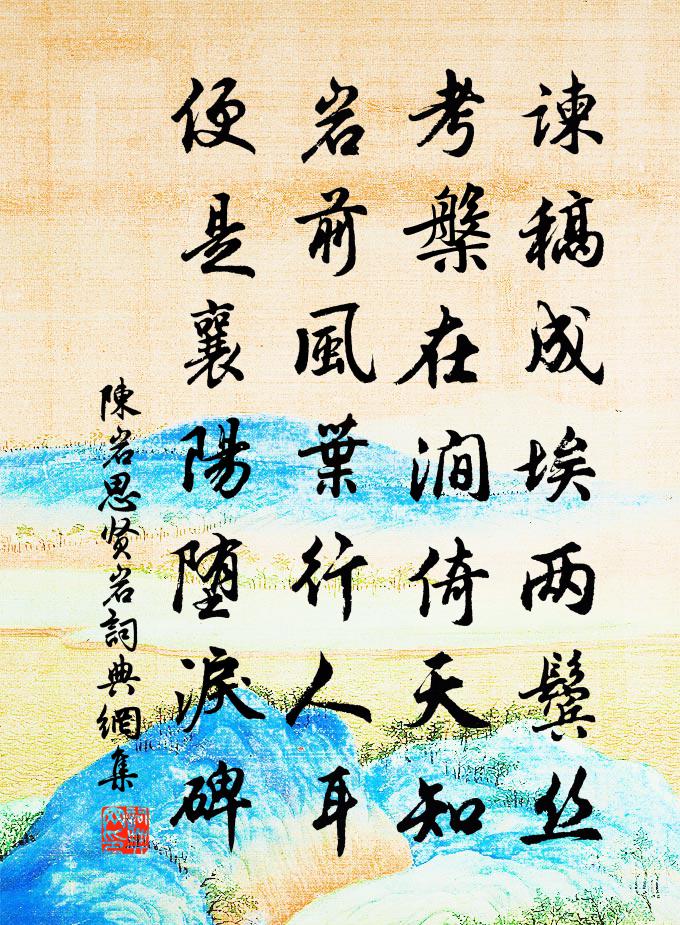 谏稿成埃两鬓丝
考槃在涧倚天知
岩前風葉行人耳
便是襄陽堕淚碑
陳岩思贤岩詞典網集